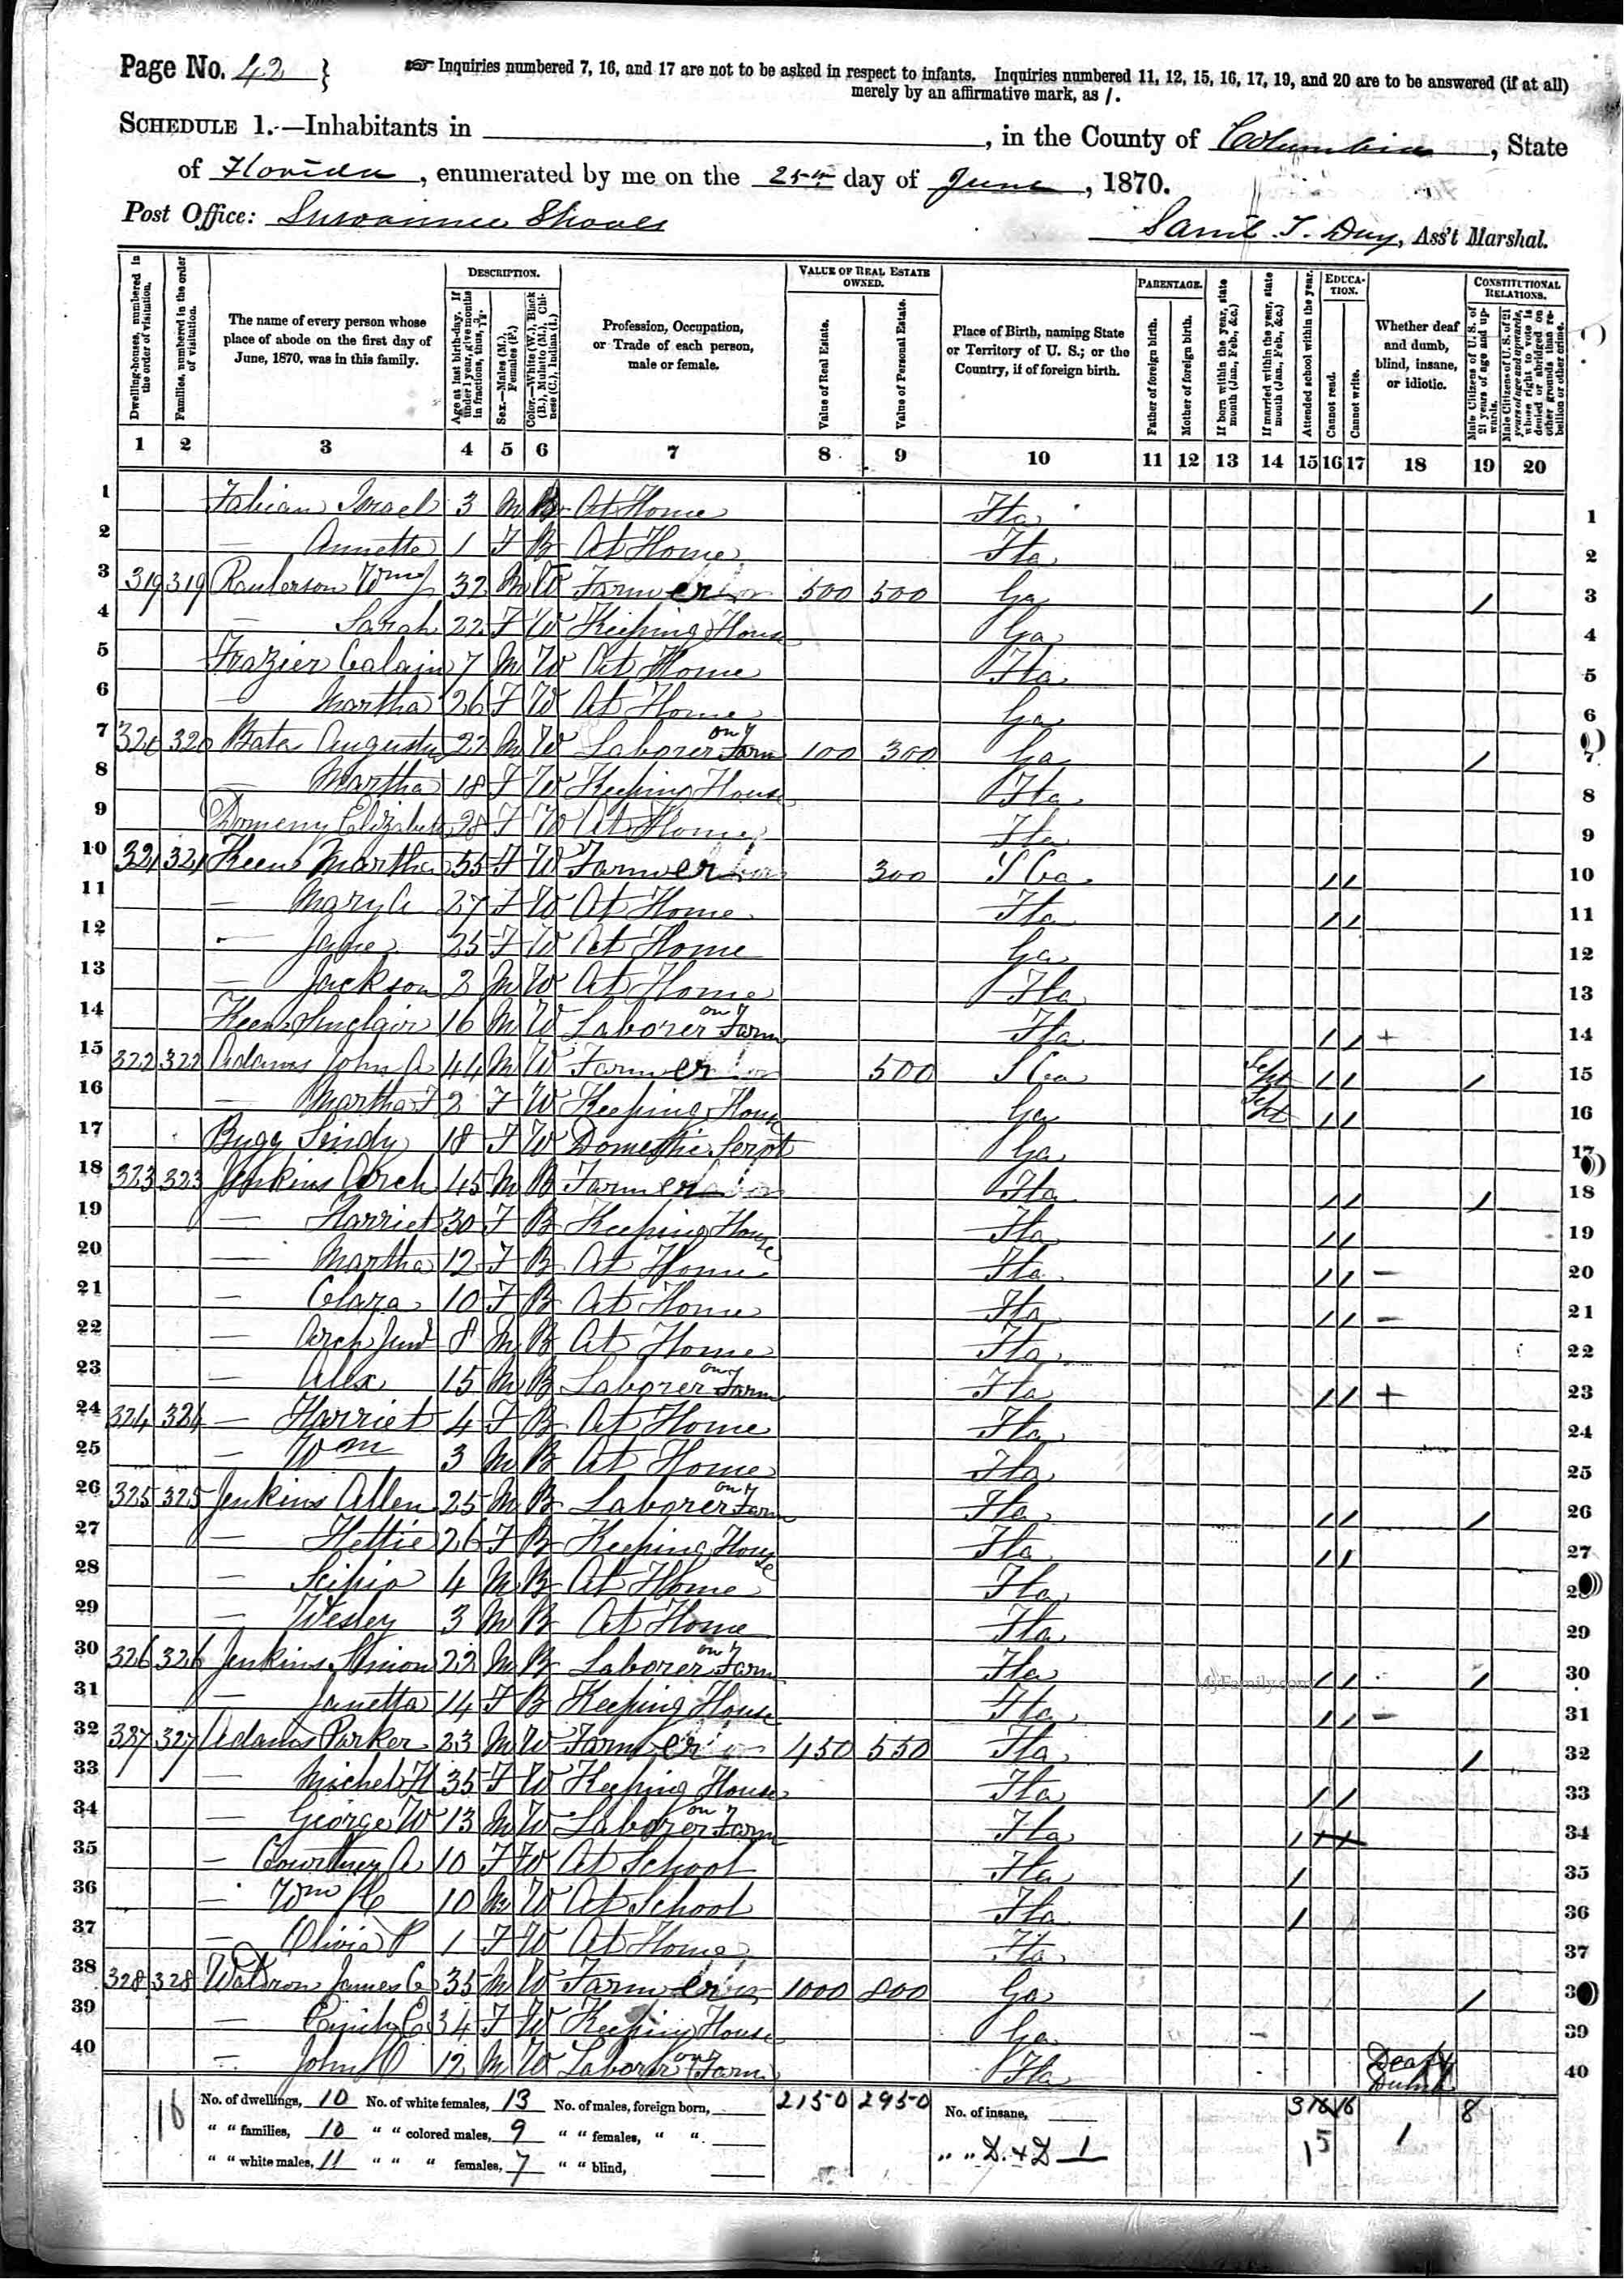 Page No. 42 }
☞ Inquiries numbered 7, 16, and 17 are not to be asked in respect to infants. Inquiries numbered 11, 12, 15, 16, 17, 19, and 20 are to be answered (if at all)
merely by an affirmative mark, as /.
SCHEDULE 1.—Inhabitants in , in the County of Columbia, State
of Florida, enumerated by me on the 25th day of June, 1870.
Post Office: Suwannee Shoals
Saml. T. Day, Ass't Marshal.
Dwelling-houses, numbered in the order of visitation.
Families, numbered in the order of visitation.
The name of every person whose place of abode on the first day of June, 1870, was in this family.
DESCRIPTION.
Age at last birth-day. If under 1 year, give months in fractions, thus, 3/12.
Sex.—Males (M.), Females (F.)
Color.—White (W.), Black (B.), Mulatto (M.), Chinese (C.), Indian (I.)
Profession, Occupation, or Trade of each person, male or female.
VALUE OF REAL ESTATE OWNED.
Value of Real Estate.
Value of Personal Estate.
Place of Birth, naming State or Territory of U. S.; or the Country, if of foreign birth.
PARENTAGE.
Father of foreign birth.
Mother of foreign birth.
If born within the year, state month (Jan., Feb., &c.)
If married within the year, state month (Jan., Feb., &c.)
Attended school within the year.
EDUCATION.
Cannot read.
Cannot write.
Whether deaf and dumb, blind, insane, or idiotic.
CONSTITUTIONAL RELATIONS.
Male Citizens of U. S. of 21 years of age and upwards.
Male Citizens of U. S. of 21 years of age and upwards, whose right to vote is denied or abridged on other grounds than rebellion or other crime.
1 2 3 4 5 6 7 8 9 10 11 12 13 14 15 16 17 18 19 20
1 Fabian Israel 3 M B At Home Fla 1
2 — Annette 1 F B At Home Fla 2
3 319 319 Raulerson Wm J 32 M W Farmer 500 500 Ga / 3
4 — Sarah 22 F W Keeping House Ga 4
5 Frazier 7 M W At Home Fla 5
6 — Martha 26 F W At Home Ga 6
7 320 320 Bata Augustus 22 M W Laborer on Farm 100 300 Ga / 7
8 — Martha 18 F W Keeping House Fla 8
9 Domeny Elizabeth 28 F W At Home Fla 9
10 321 321 Keen Martha 55 F W Farmer 300 S Ca / / 10
11 — Mary A 27 F W At Home Fla / / 11
12 — Jane 25 F W At Home Ga 12
13 — Jackson 2 M W At Home Fla 13
14 Keen Sinclair 16 M W Laborer on Farm Fla / / + 14
15 322 322 Adams John A 44 M W Farmer 500 S Ca Sept / / / 15
16 — Martha F 2 F W Keeping House Ga Sept / / 16
17 Bugg Sindy 18 F W Domestic Servt Ga 17
18 323 323 Jenkins Arch 45 M B Farmer Fla / / / 18
19 — Harriet 30 F B Keeping House Fla / / 19
20 — Martha 12 F B At Home Fla / / — 20
21 — Clara 10 F B At Home Fla / / — 21
22 — Arch Jun 8 M B At Home Fla 22
23 — Alex 15 M B Laborer on Farm Fla / / + 23
24 324 324 — Harriet 4 F B At Home Fla 24
25 — Wm 3 M B At Home Fla 25
26 325 325 Jenkins Allen 25 M B Laborer on Farm Fla / / / 26
27 — Hettie 26 F B Keeping House Fla / / 27
28 — Scipio 4 M B At Home Fla 28
29 — Wesley 3 M B At Home Fla 29
30 326 326 Jenkins Simon 22 M B Laborer on Farm Fla / / / 30
MyFamily.com
31 — Janetta 14 F B Keeping House Fla / / — 31
32 327 327 Adams Parker 33 M W Farmer 450 550 Fla / 32
33 — Michel H 35 F W Keeping House Fla / / 33
34 — George W 13 M W Laborer on Farm Fla / / / 34
35 — Courtney A 10 F W At School Fla / 35
36 — Wm H 10 M W At School Fla / 36
37 — Olivia P 1 F W At Home Fla 37
38 328 328 Waldron James C 35 M W Farmer 1000 800 Ga / 38
39 — 34 F W Keeping House Ga 39
40 — John O 12 M W Laborer on Farm Fla Deaf & Dumb 40
16 No. of dwellings, 10 No. of white females, 13 No. of males, foreign born, 2150 2950 No. of insane, 3 16 16 8
" " families, 10 " " colored males, 9 " " females, " " " " D. & D 1 15 1
" " white males, 11 " " " females, 7 " " blind,